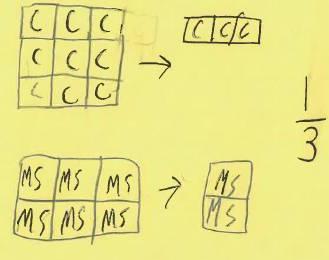 C C C → C C C
C C C
C C C
1/3
MS MS MS → MS
MS MS MS MS